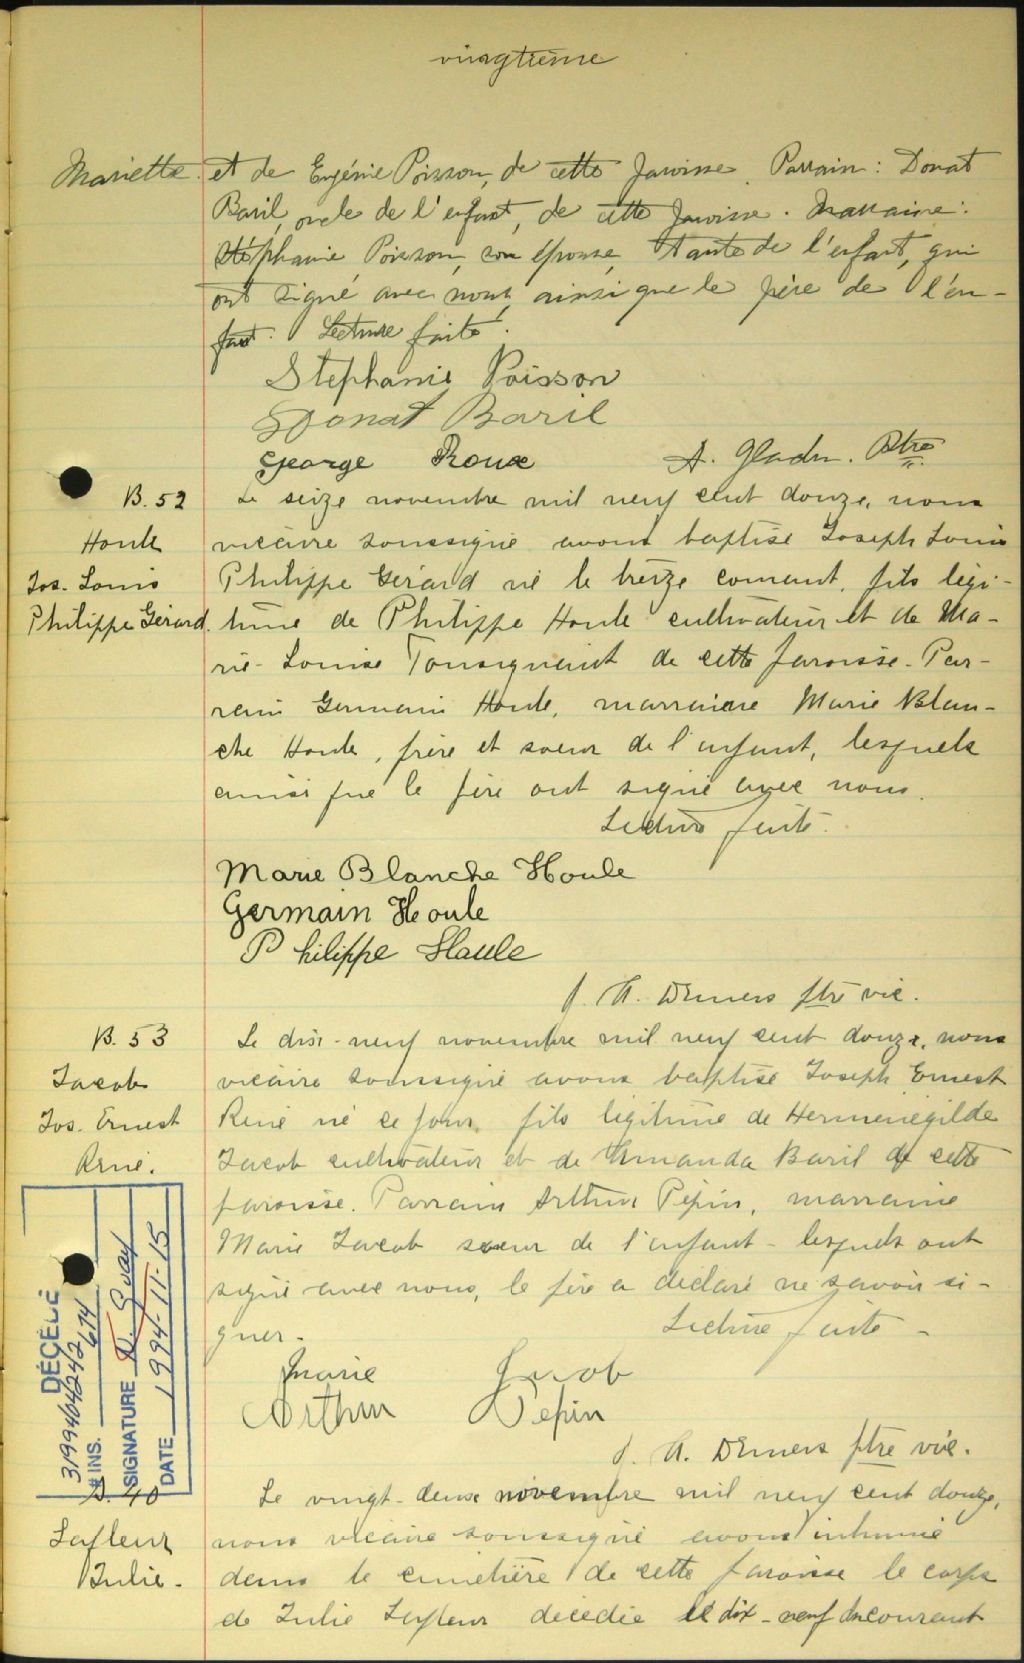 vingtième
Mariette. et de Eugénie Poisson, de cette paroisse. Parrain: Donat
Baril, oncle de l'enfant, de cette paroisse. Marraine:
Stéphanie Poisson, son épouse, tante de l'enfant, qui
ont signé avec nous, ainsi que le père de l'en-
fant. Lecture faite.
Stephanie Poisson
Donat Baril
George Roux A. Ptre
B. 52 Le seize novembre mil neuf cent douze, nous
Houle vicaire soussigné avons baptisé Joseph Louis
Jos. Louis Philippe Gérard né le treize courant, fils légi-
Philippe Gérard. time de Philippe Houle cultivateur et de Ma-
rie-Louise Tousignant de cette paroisse. Par-
rain Germain Houle, marraine Marie Blan-
che Houle, frère et soeur de l'enfant, lesquels
ainsi que le père ont signé avec nous.
Lecture faite.
Marie Blanche Houle
Germain Houle
Philippe Houle
J. A. Demers ptre vic.
B. 53 Le dix-neuf novembre mil neuf cent douze, nous
Jacob vicaire soussigné avons baptisé Joseph Ernest
Jos. Ernest René né ce jour, fils légitime de Herménégilde
René. Jacob cultivateur et de Amanda Baril de cette
paroisse. Parrain Arthur Pépin, marraine
Marie Jacob soeur de l'enfant lesquels ont
signé avec nous, le père a déclaré ne savoir si-
gner. Lecture faite -
DÉCÉDÉ
3199404242674
# INS.
SIGNATURE N. Guay
DATE 1994-11-15
Marie Jacob
Arthur Pepin
J. A. Demers ptre vic.
S. 40 Le vingt-deux novembre mil neuf cent douze,
Lafleur nous vicaire soussigné avons inhumé
Julie. dans le cimetière de cette paroisse le corps
de Julie Lafleur décédée le dix-neuf du courant